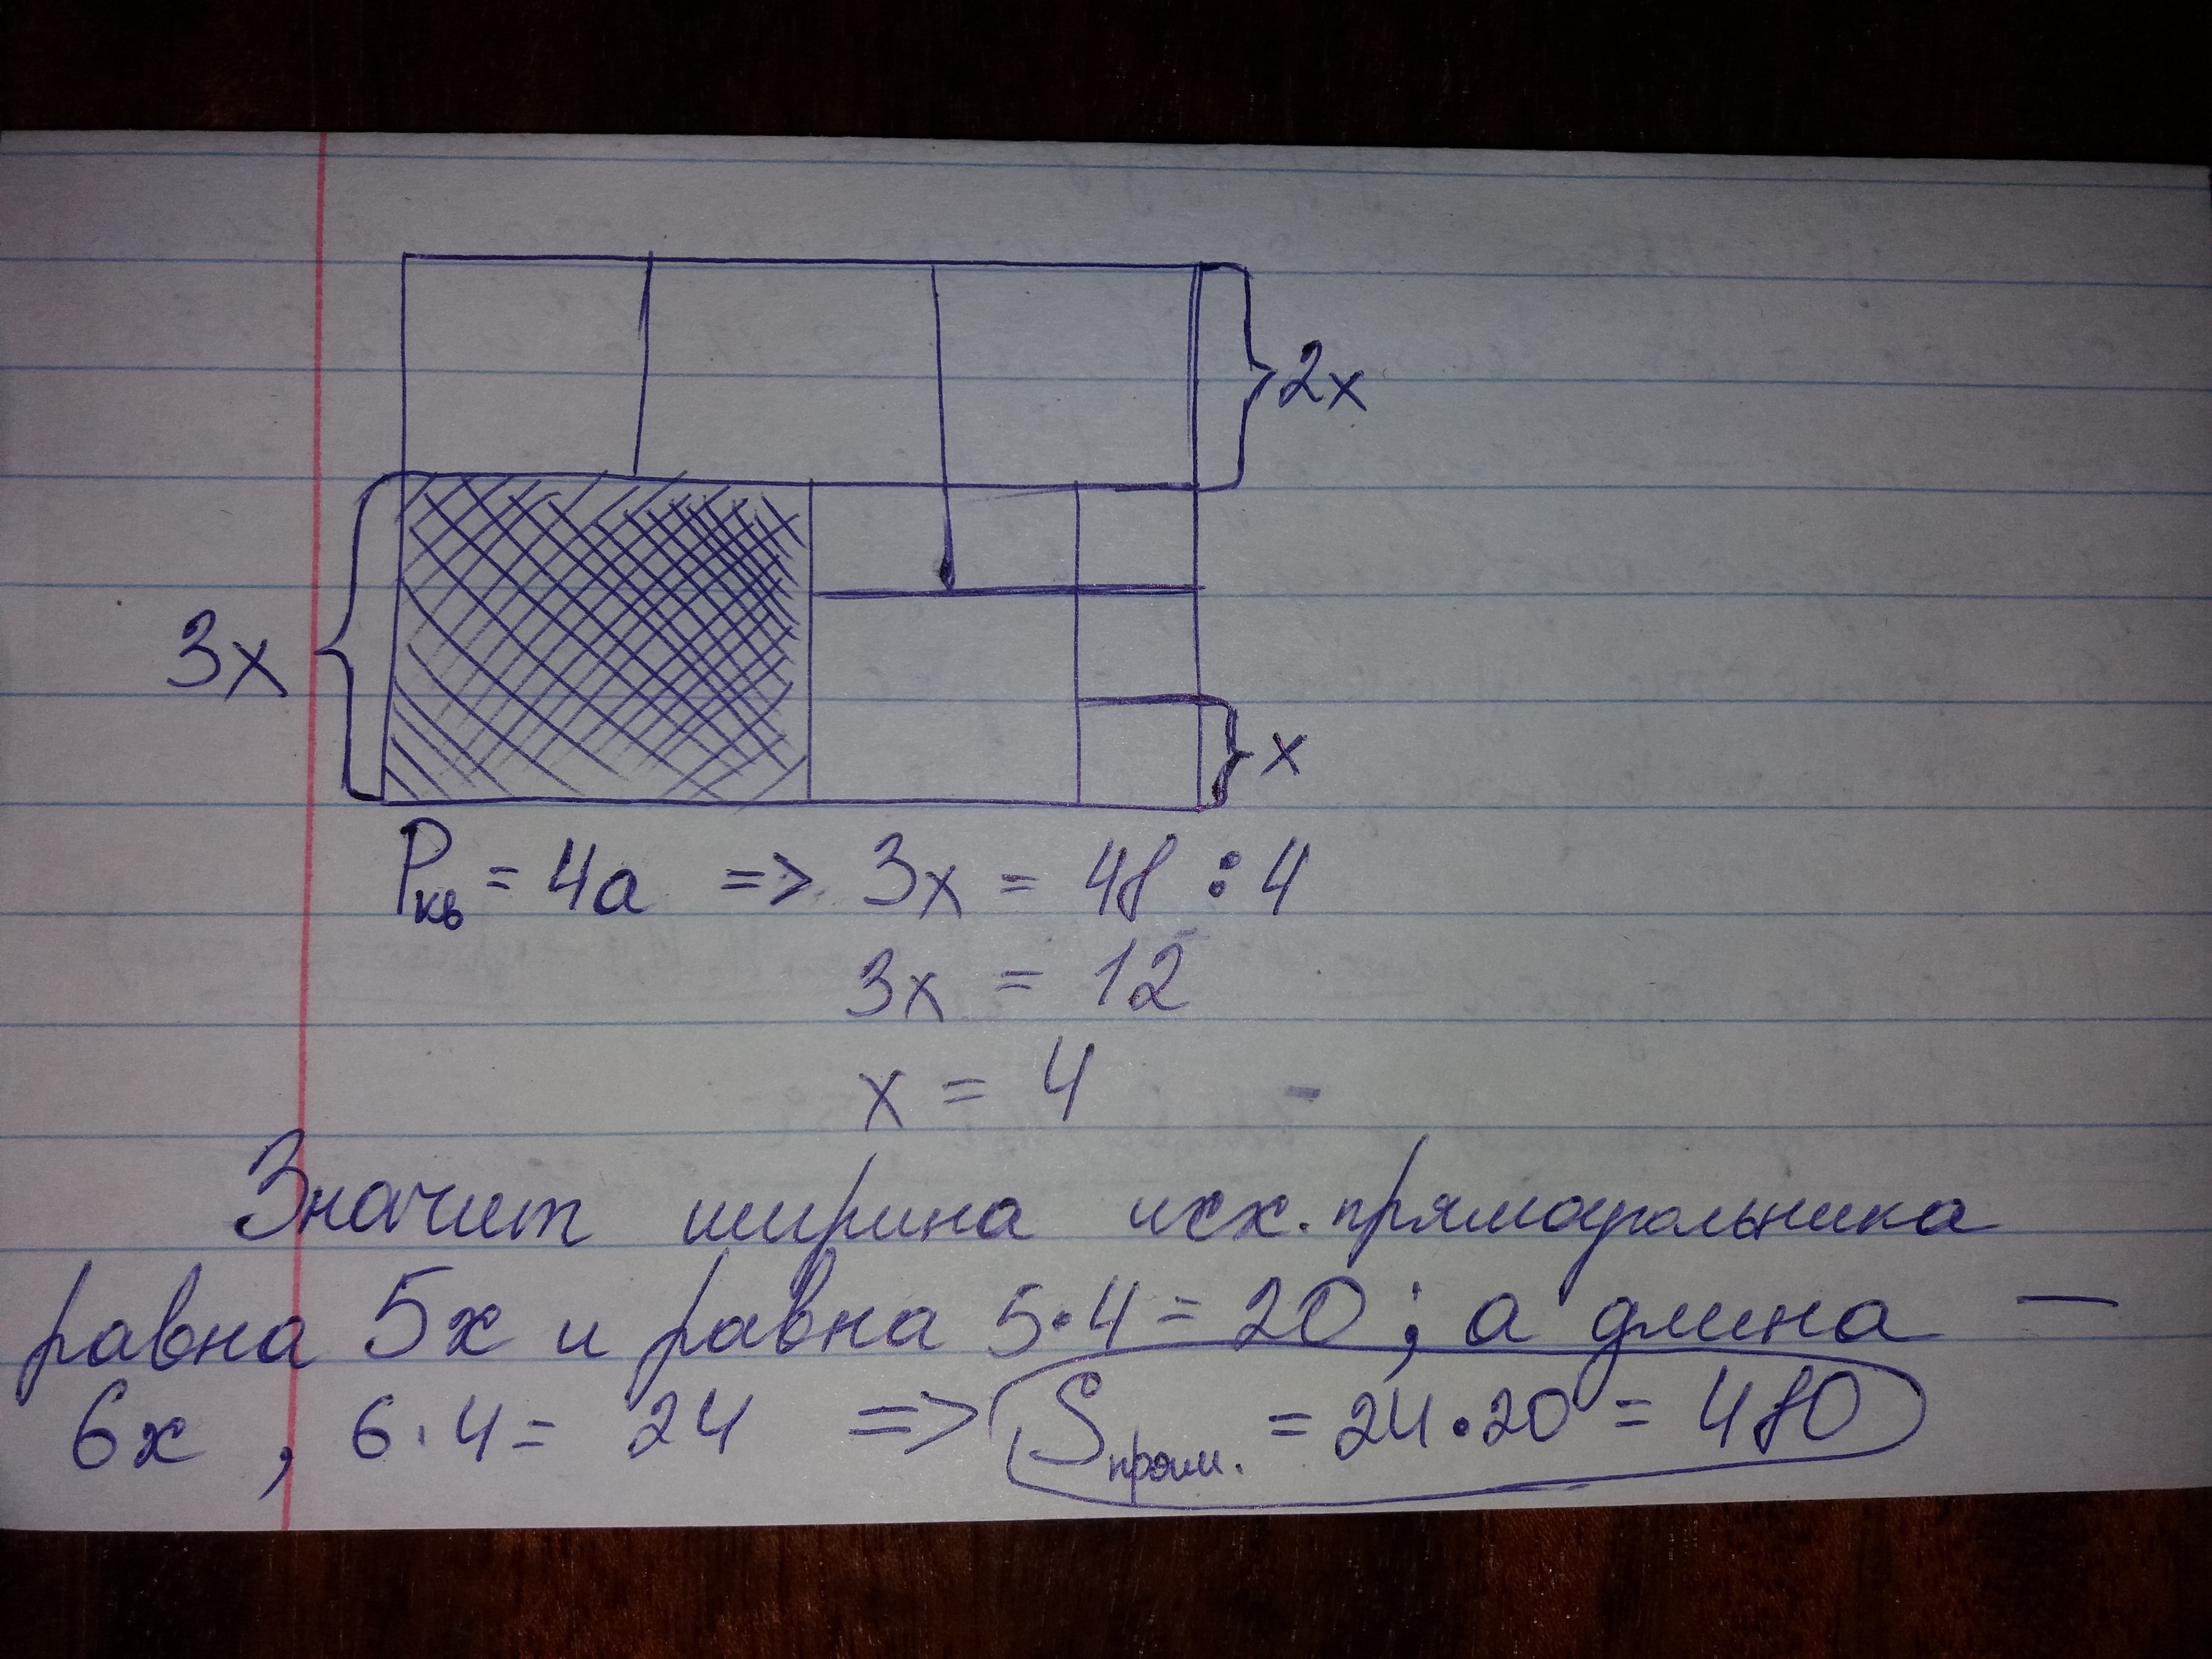 2x
3x
x
Pкв = 4a => 3x = 48 : 4
3x = 12
x = 4
Значит ширина исх. прямоугольника
равна 5x и равна 5·4 = 20 ; а длина —
6x , 6·4 = 24 => Sпрям. = 24·20 = 480